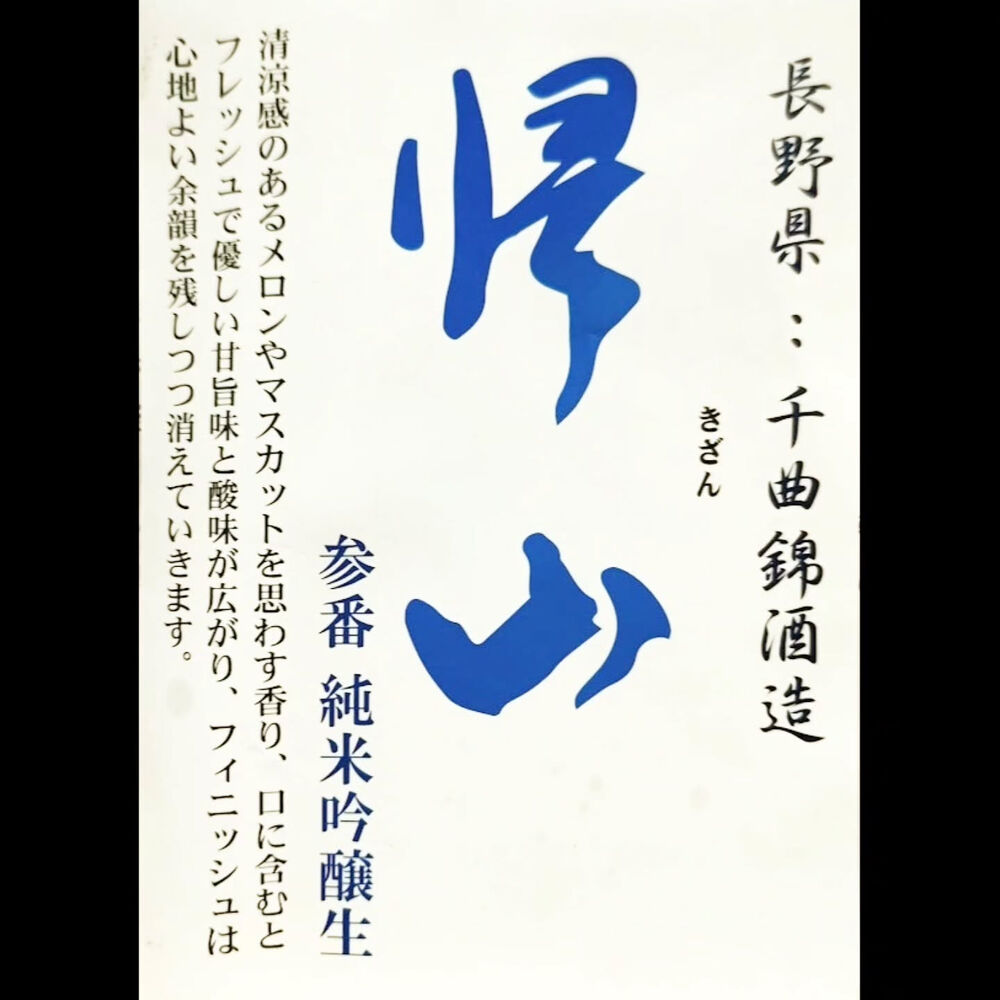 長野県：千曲錦酒造
きざん
帰山
参番 純米吟醸生
清涼感のあるメロンやマスカットを思わす香り、口に含むと
フレッシュで優しい甘旨味と酸味が広がり、フィニッシュは
心地よい余韻を残しつつ消えていきます。